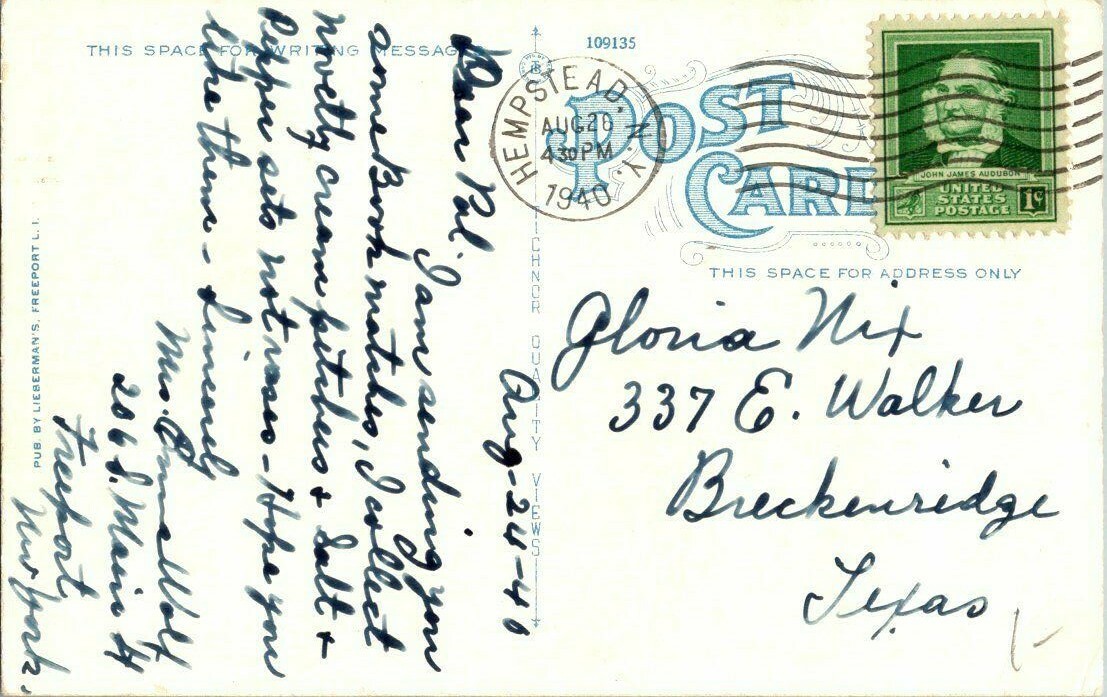 THIS SPACE FOR WRITING MESSAGE
109135
POST
CARD
HEMPSTEAD, N.Y.
AUG 26
4 30 PM
1940
JOHN JAMES AUDUBON
UNITED
STATES
POSTAGE
1¢
THIS SPACE FOR ADDRESS ONLY
Aug-24-40
Dear Pal.
I am sending you
some Book matches, I collect
novelty cream pitchers + Salt +
Pepper sets not vases - Hope you
like them - Sincerely
Mrs. Wolf
206 S. Main St
Freeport
New York.
Gloria Nix
337 E. Walker
Breckenridge
Texas
TICHNOR QUALITY VIEWS
PUB. BY LIEBERMAN'S, FREEPORT L.I.